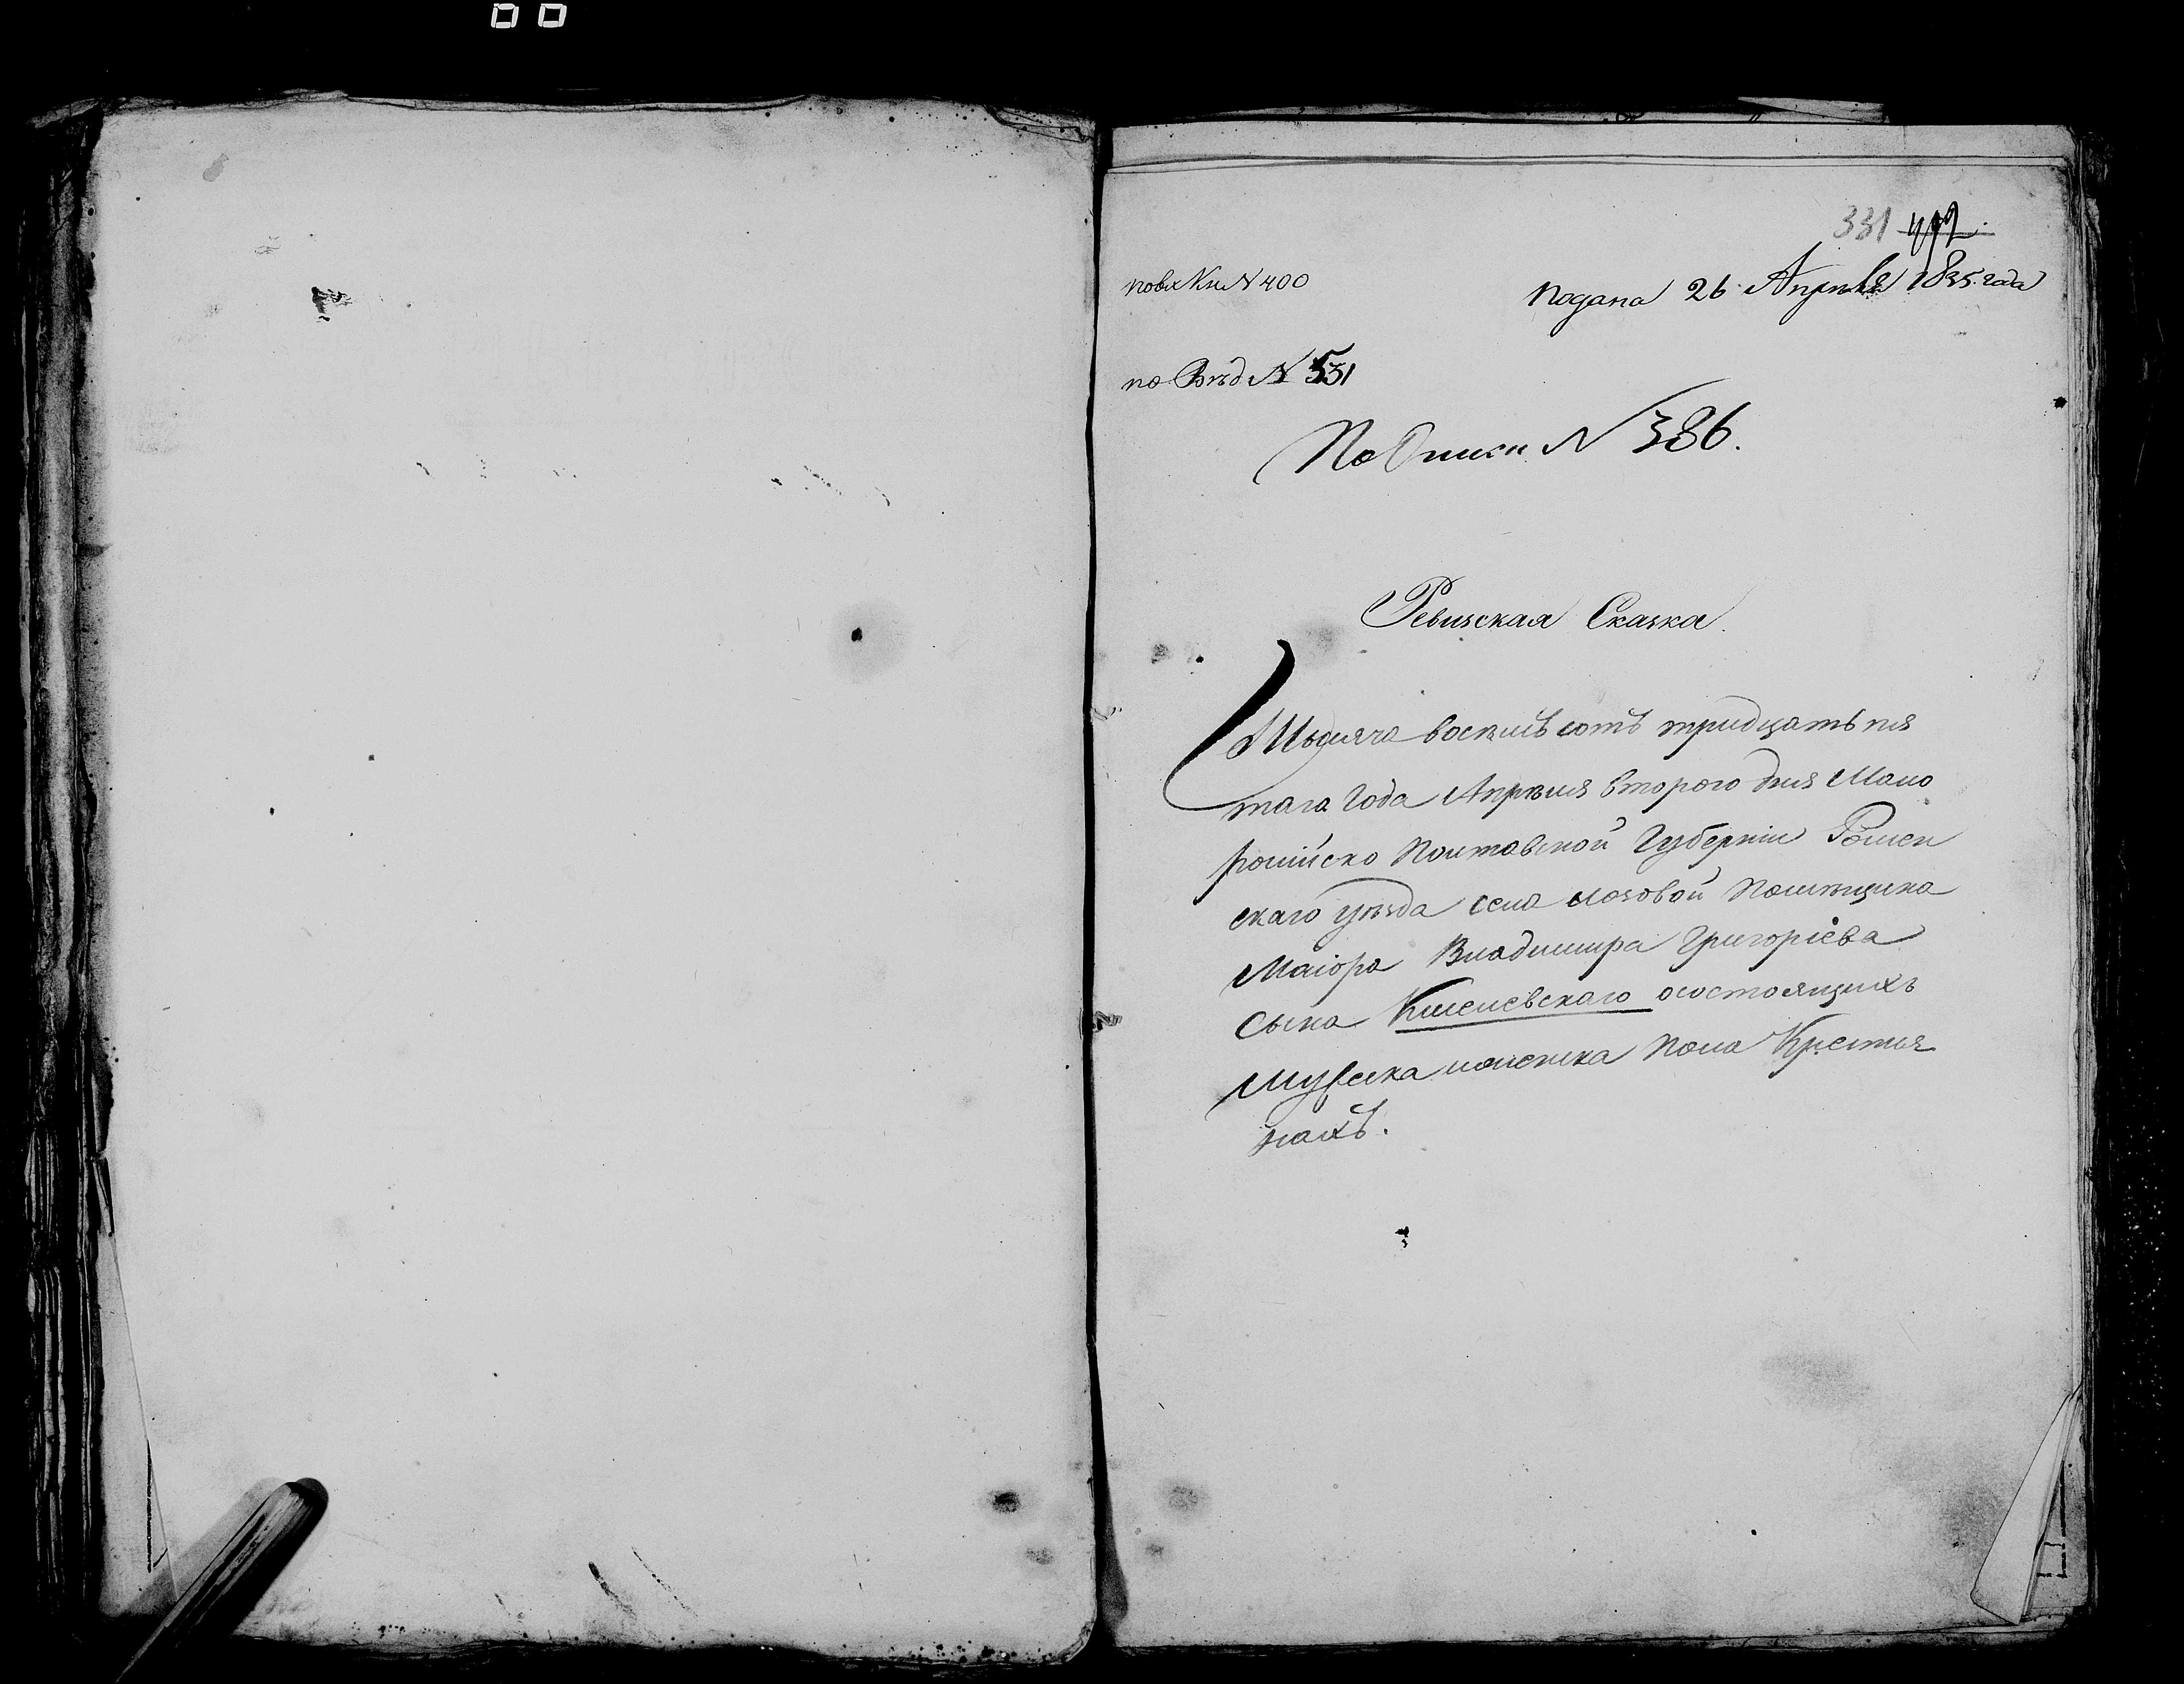 331
подана 26 Апреля 1835 года
по вх Кн N 400
по Вѣд N 531
По Описи N 386.
Ревизская Сказка.
Тысяча восемь сотъ тридцать пя
таго Года Апреля второго дня Мало
російско Полтавской Губерніи Ромен
скаго уѣзда села лозовой Помѣщика
Маіора Владимира Григоріева
Сына осостоящихъ
мужска иженска Пола Крестья
нахъ.